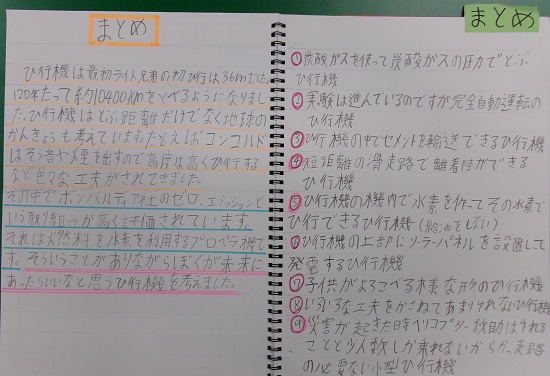 まとめ
ひ行機は最初ライト兄弟の初ひ行は36mでした。
120年たって約10400kmをとべるようになりまし
た。ひ行機はとぶ距離だけでなく地球の
かんきょうも考えています。たとえばコンコルド
はそう音や煙を出すので高度は高くひ行する
など色々な工夫がされてきました。
その中でボンバルディア社のゼロ.エミッションと
いう取り組みが高く評価されています。
それは燃料を水素を利用するプロペラ機で
す。そういうことがありながらぼくが未来に
あったらいいなと思うひ行機を考えました。
まとめ
①炭酸ガスを使って炭酸ガスの圧力でとぶ
ひ行機
②実験は進んでいるのですが完全自動運転の
ひ行機
③ひ行機の中でセメントを輸送できるひ行機
④短距離の滑走路で離着陸ができる
ひ行機
⑤ひ行機の機内で水素を作ってその水素で
ひ行できるひ行機(給油をしない)
⑥ひ行機の上部にソーラーパネルを設置して
発電するひ行機
⑦子供がよろこべる様な形のひ行機
⑧いろいろな工夫をかさねてあまりゆれないひ行機
⑨災害が起きた時ヘリコプター救助はゆれる
ことと少人数しか乗れないから、走路
の必要ない小型ひ行機